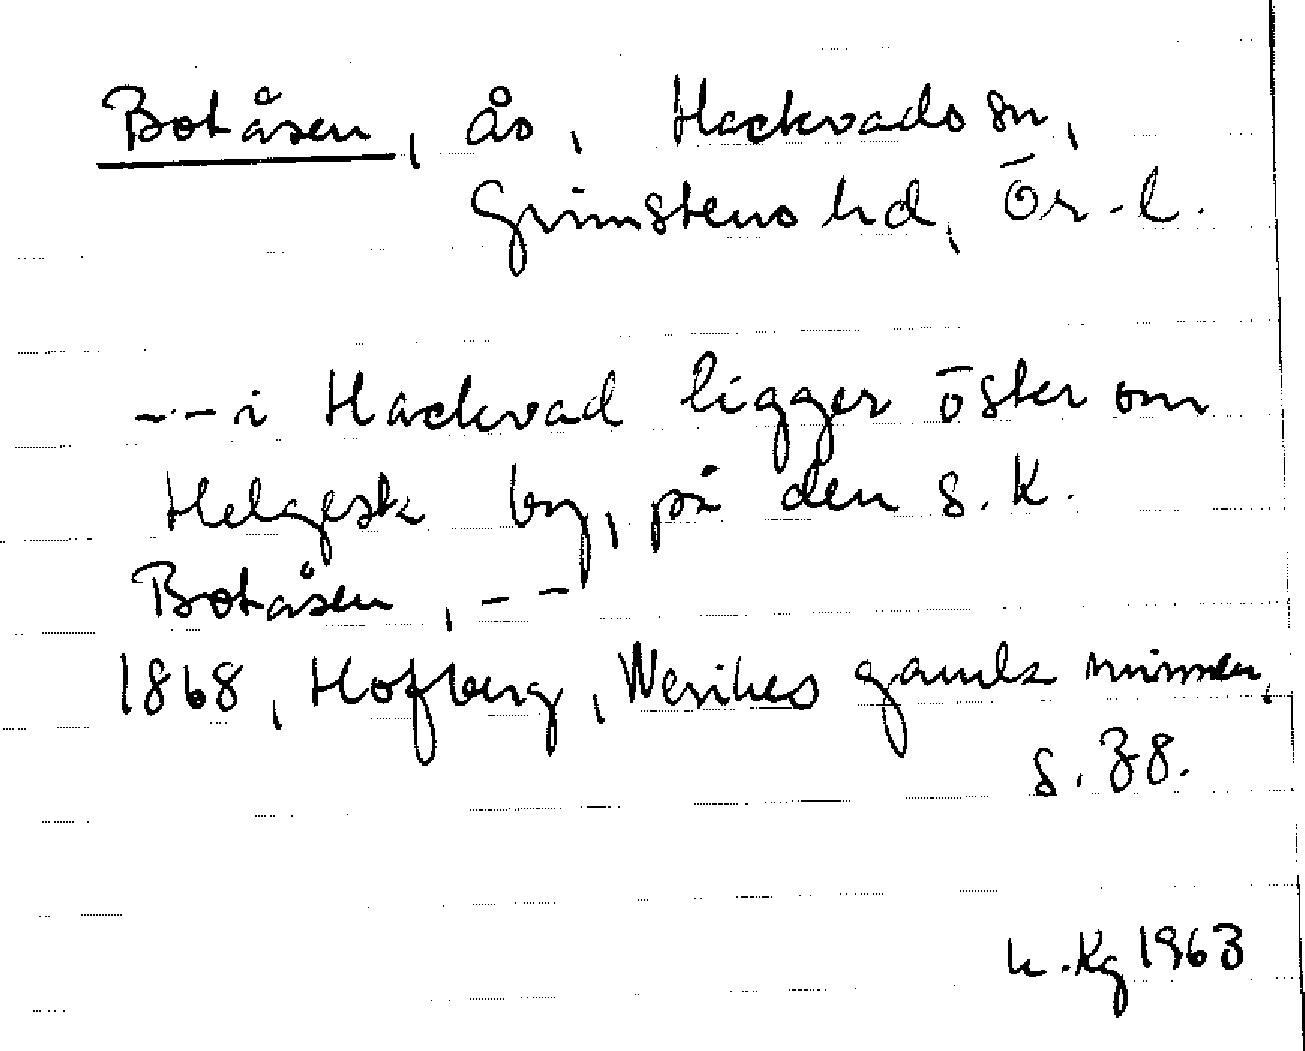 Botåsen, ås, Hackvads sn,
Grimstens hd, Ör-l.
--- i Hackvad ligger öster om
Helgesta by, på den s.k.
Botåsen, --
1868, Hofberg, Nerikes gamla minnen,
s. 38.
Kg 1963